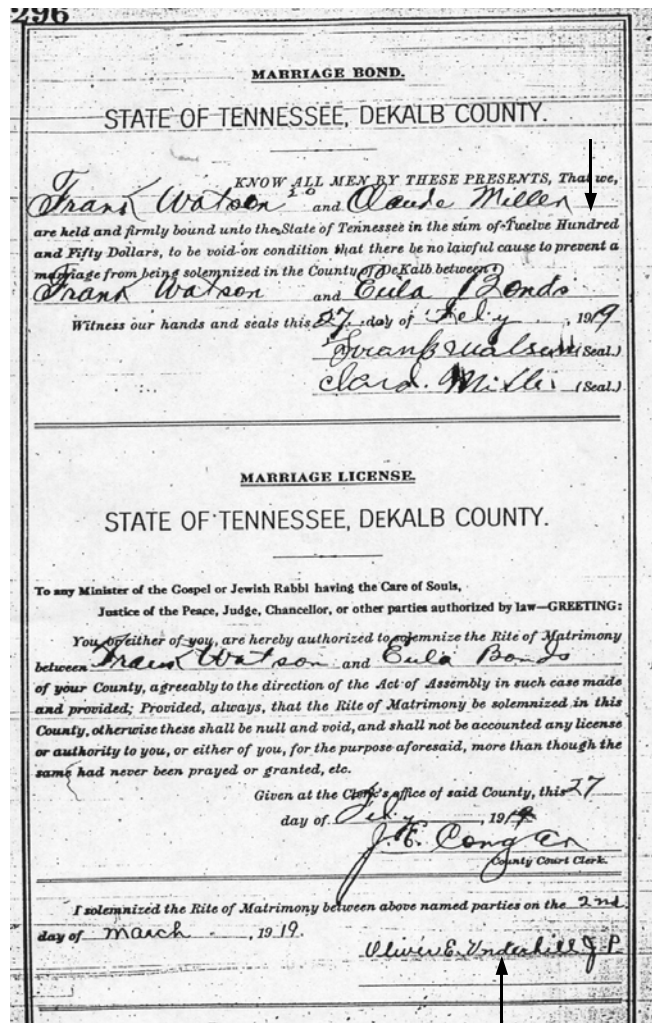 296
MARRIAGE BOND.
STATE OF TENNESSEE, DEKALB COUNTY.
KNOW ALL MEN BY THESE PRESENTS, That we,
Frank Watson 20 and Claude Miller
are held and firmly bound unto the State of Tennessee in the sum of Twelve Hundred
and Fifty Dollars, to be void on condition that there be no lawful cause to prevent a
marriage from being solemnized in the County of DeKalb between
Frank Watson and Eula Bonds
Witness our hands and seals this 27 day of Feby, 1919
Frank Watson (Seal.)
Miller (Seal.)
MARRIAGE LICENSE.
STATE OF TENNESSEE, DEKALB COUNTY.
To any Minister of the Gospel or Jewish Rabbi having the Care of Souls,
Justice of the Peace, Judge, Chancellor, or other parties authorized by law—GREETING:
You, or either of you, are hereby authorized to solemnize the Rite of Matrimony
between Frank Watson and Eula Bonds
of your County, agreeably to the direction of the Act of Assembly in such case made
and provided; Provided, always, that the Rite of Matrimony be solemnized in this
County, otherwise these shall be null and void, and shall not be accounted any license
or authority to you, or either of you, for the purpose aforesaid, more than though the
same had never been prayed or granted, etc.
Given at the Clerk's office of said County, this 27
day of Feby, 1919
J. E. Conger
County Court Clerk.
I solemnized the Rite of Matrimony between above named parties on the 2nd
day of March, 1919.
Oliver E. Underhill J. P.